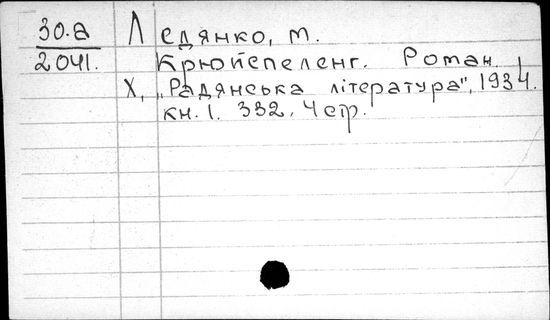 30.а Ледянко, М.
2041. Крюйспеленг. Роман.
Х., „Радянська література", 1934.
кн. 1. 332, 4 стр.